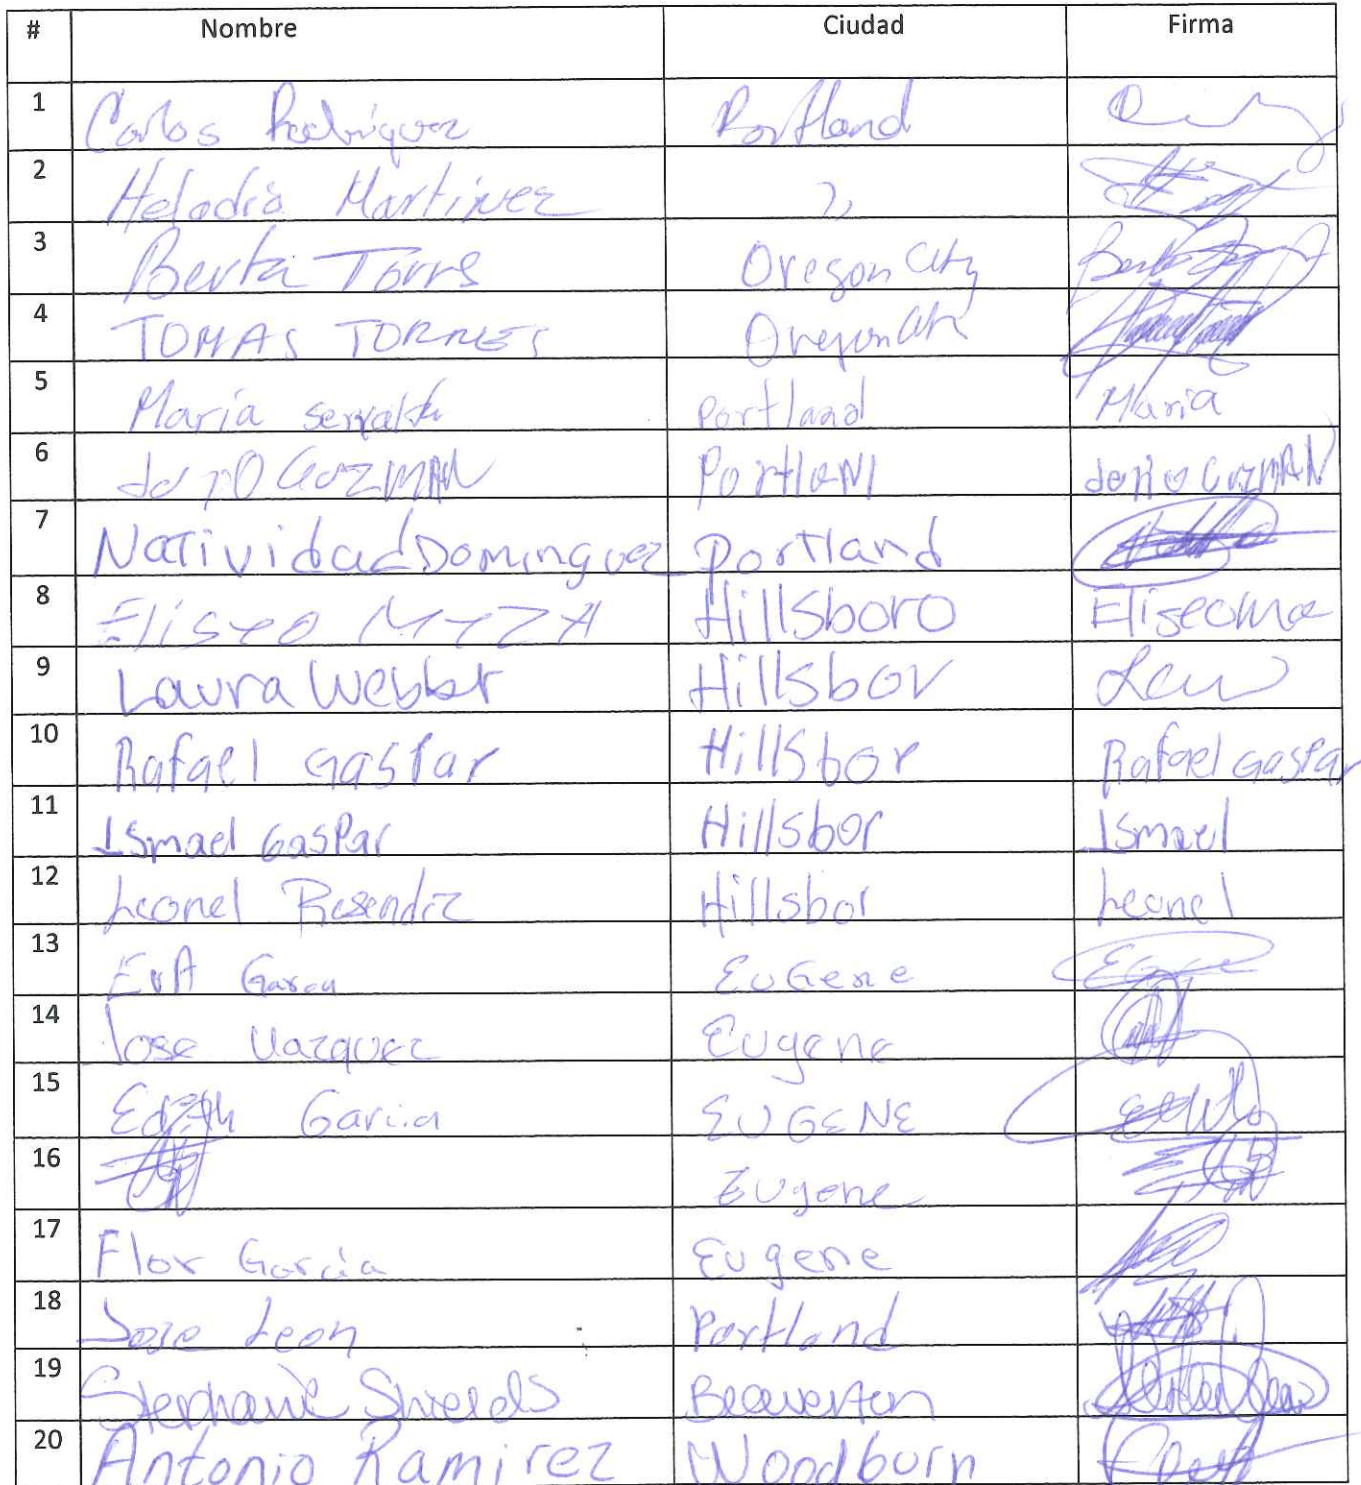 # Nombre Ciudad Firma
1 Carlos Rodriguez Portland
2 Helodia Martinez ,,
3 Berta Torres Oregon City Berta
4 TOMAS TORRES Oregon City
5 Maria Portland Maria
6 GUZMAN Portland GUZMAN
7 Natividad Dominguez Portland
8 Eliseo MEZA Hillsboro Eliseo
9 Laura Webber Hillsbor
10 Rafael Gaspar Hillsbor Rafael Gaspar
11 Ismael Gaspar Hillsbor Ismael
12 Leonel Resendiz Hillsbor Leonel
13 EVA Garcia EuGene
14 Jose Vazquez Eugene
15 Edith Garcia EUGENE
16 Eugene
17 Flor Garcia Eugene
18 Jose Leon Portland
19 Stephanie Shields Beaverton
20 Antonio Ramirez Woodburn